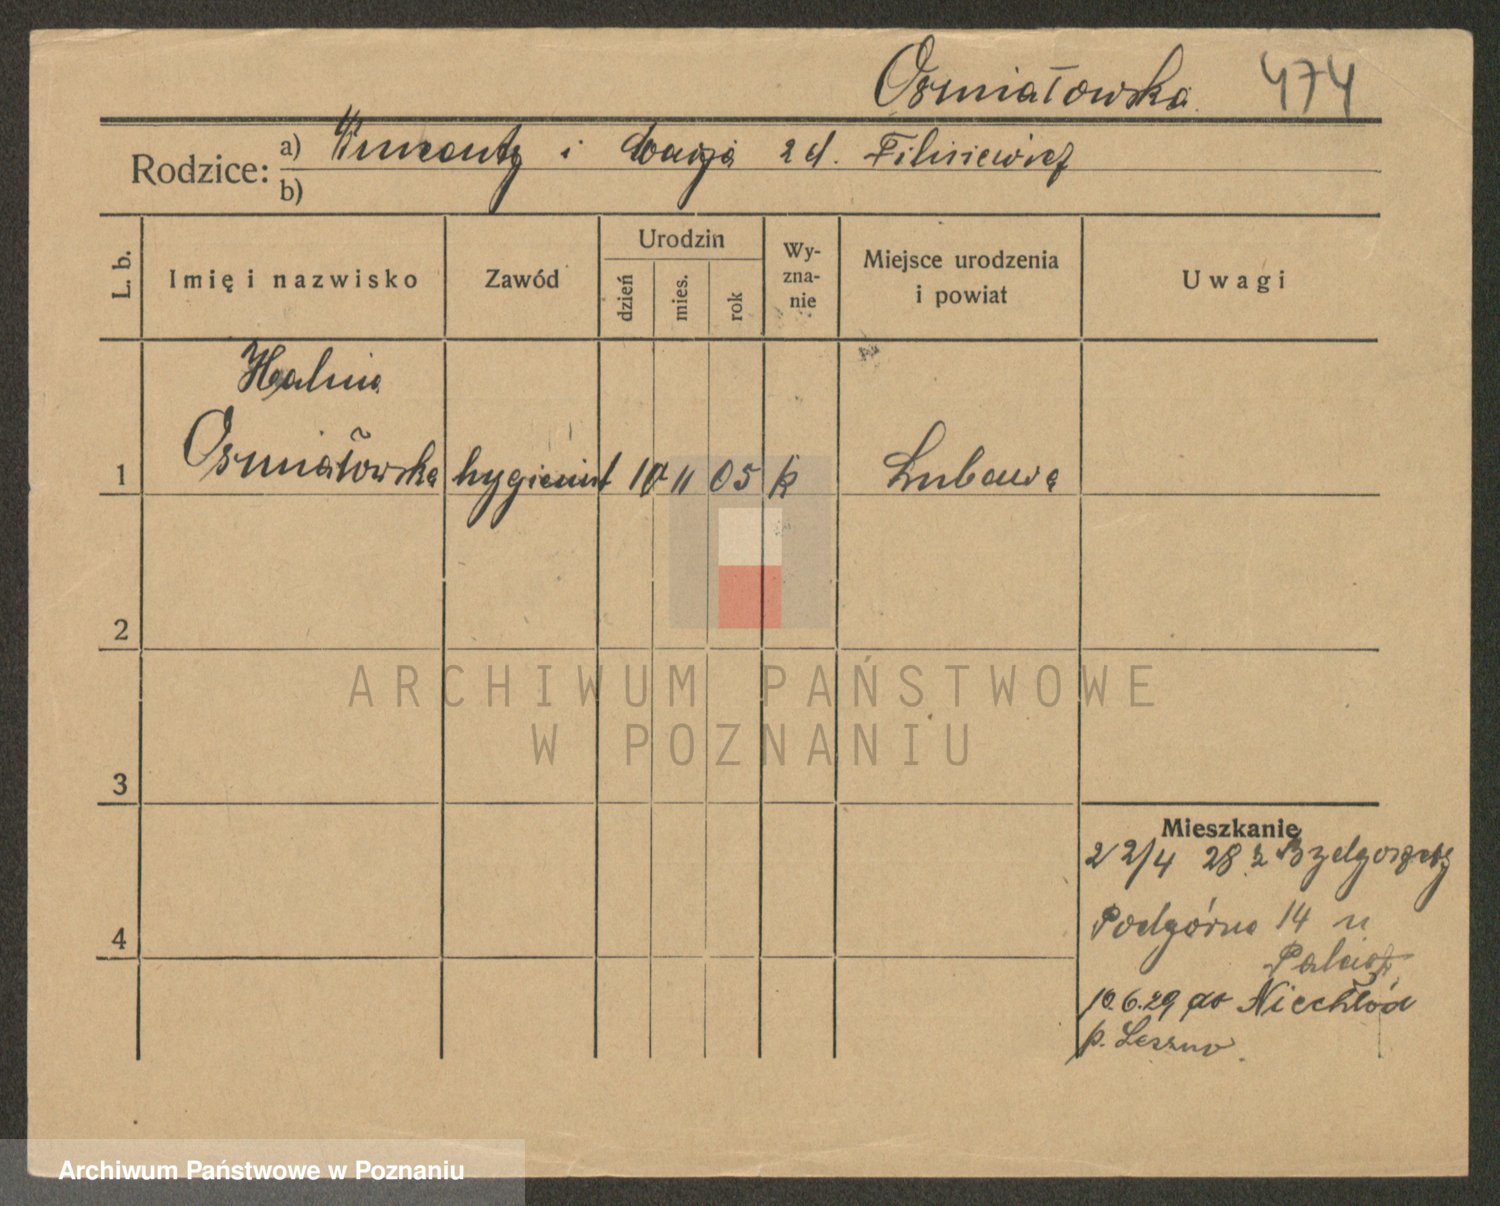 Osmiałowska 474
Rodzice: a) Wincenty i Maryja z d. Filisiewicz
b)
L. b. Imię i nazwisko Zawód Urodzin dzień mies. rok Wy-zna-nie Miejsce urodzenia i powiat Uwagi
Halina
1 Osmiałowska hygienist 10 11 05 k Lubawa
2
3
4
Mieszkanie
22/4 28 z Bydgoszczy
Podgórna 14 u
10.6.29 do Niechłód
p. Leszno.
ARCHIWUM PAŃSTWOWE
W POZNANIU
Archiwum Państwowe w Poznaniu